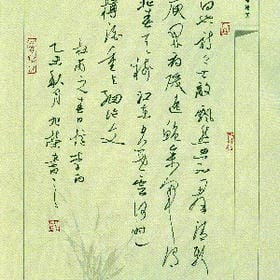 白也詩無敵飄然思不群清新
庾開府俊逸鮑參軍渭
北春天樹江東日暮雲何時一
樽酒重與細論文
杜甫之春日憶李白
秋月